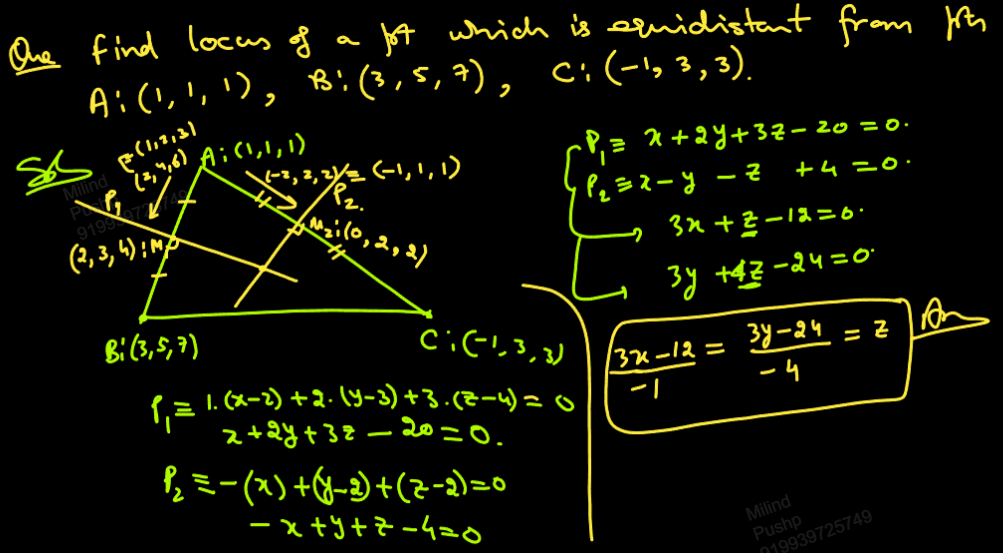 Que Find locus of a pt which is equidistant from pts
A: (1, 1, 1), B: (3, 5, 7), C: (-1, 3, 3).
Sol
(1,2,3)
(2,4,6)
A: (1,1,1)
(-2,2,2) ≡ (-1,1,1)
P₁
P₂.
(2,3,4): M₁
M₂: (0, 2, 2)
B: (3,5,7)
C: (-1, 3, 3)
P₁ ≡ 1.(x-2) + 2.(y-3) + 3.(z-4) = 0
x + 2y + 3z - 20 = 0.
P₂ ≡ -(x) + (y-2) + (z-2) = 0
-x + y + z - 4 = 0
P₁ ≡ x + 2y + 3z - 20 = 0.
P₂ ≡ x - y - z + 4 = 0.
3x + z - 12 = 0.
3y + 4z - 24 = 0.
(3x-12)/-1 = (3y-24)/-4 = z
Ans
Milind
Pushp
919939725749
Milind
Pushp
919939725749